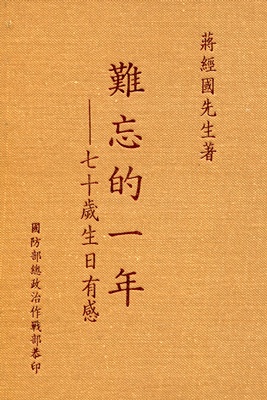 蔣經國先生著
難忘的一年
——七十歲生日有感
國防部總政治作戰部恭印